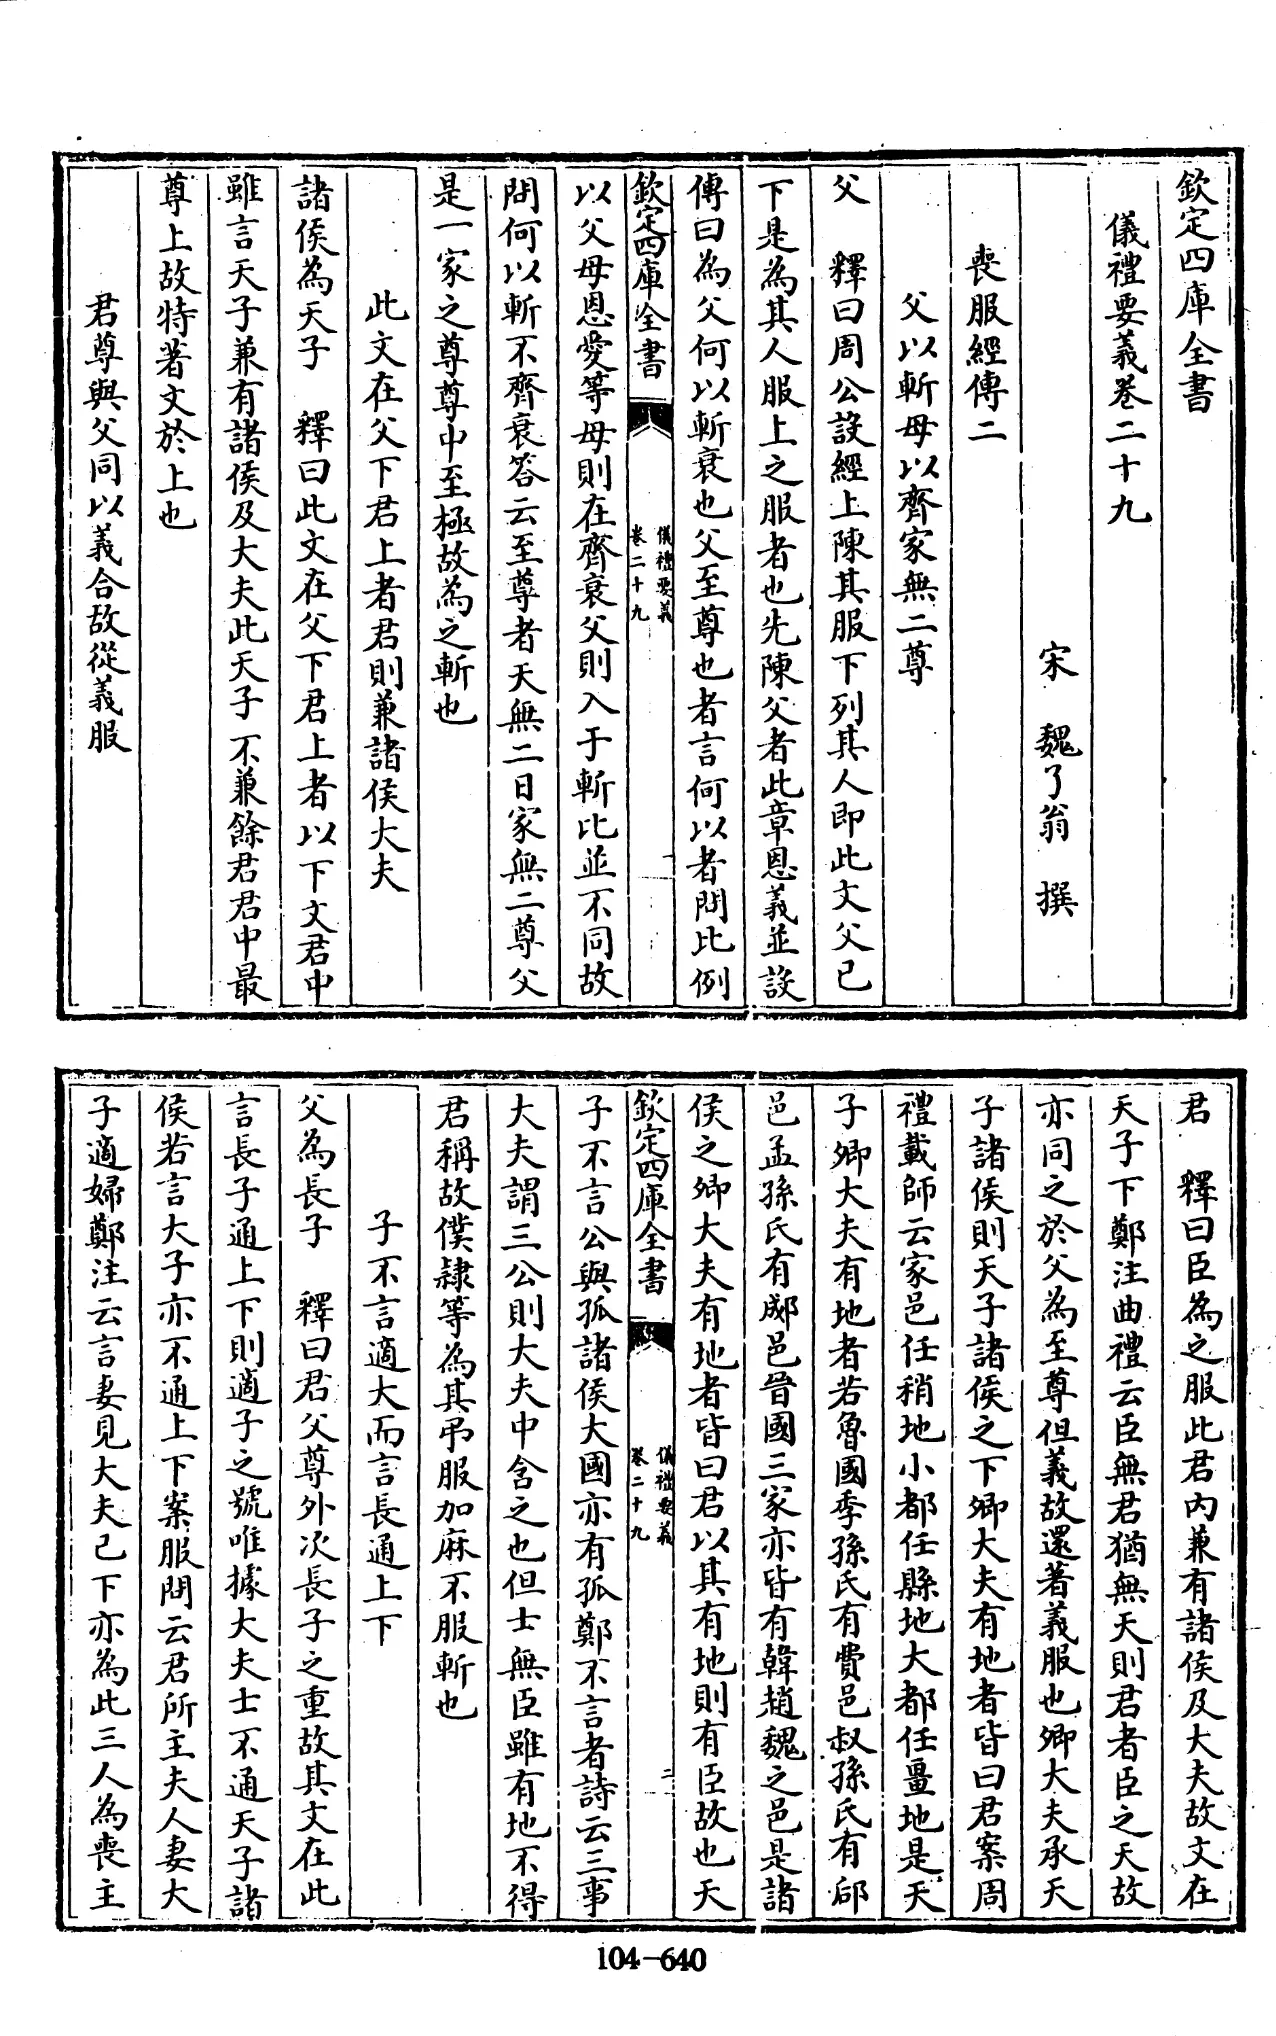 欽定四庫全書
儀禮要義卷二十九
宋 魏了翁 撰
喪服經傳二
父以斬母以齊家無二尊
父 釋曰周公設經上陳其服下列其人即此文父已
下是為其人服上之服者也先陳父者此章恩義並設
傳曰為父何以斬衰也父至尊也者言何以者問比例
欽定四庫全書
儀禮要義
卷二十九
一
以父母恩愛等母則在齊衰父則入于斬比並不同故
問何以斬不齊衰答云至尊者天無二日家無二尊父
是一家之尊尊中至極故為之斬也
此文在父下君上者君則兼諸侯大夫
諸侯為天子 釋曰此文在父下君上者以下文君中
雖言天子兼有諸侯及大夫此天子不兼餘君君中最
尊上故特著文於上也
君尊與父同以義合故從義服
君 釋曰臣為之服此君內兼有諸侯及大夫故文在
天子下鄭注曲禮云臣無君猶無天則君者臣之天故
亦同之於父為至尊但義故還著義服也卿大夫承天
子諸侯則天子諸侯之下卿大夫有地者皆曰君案周
禮載師云家邑任稍地小都任縣地大都任畺地是天
子卿大夫有地者若魯國季孫氏有費邑叔孫氏有郈
邑孟孫氏有郕邑晉國三家亦皆有韓趙魏之邑是諸
侯之卿大夫有地者皆曰君以其有地則有臣故也天
欽定四庫全書
儀禮要義
卷二十九
二
子不言公與孤諸侯大國亦有孤鄭不言者詩云三事
大夫謂三公則大夫中含之也但士無臣雖有地不得
君稱故僕隸等為其弔服加麻不服斬也
子不言適大而言長通上下
父為長子 釋曰君父尊外次長子之重故其文在此
言長子通上下則適子之號唯據大夫士不通天子諸
侯若言大子亦不通上下案服問云君所主夫人妻大
子適婦鄭注云言妻見大夫已下亦為此三人為喪主
104-640